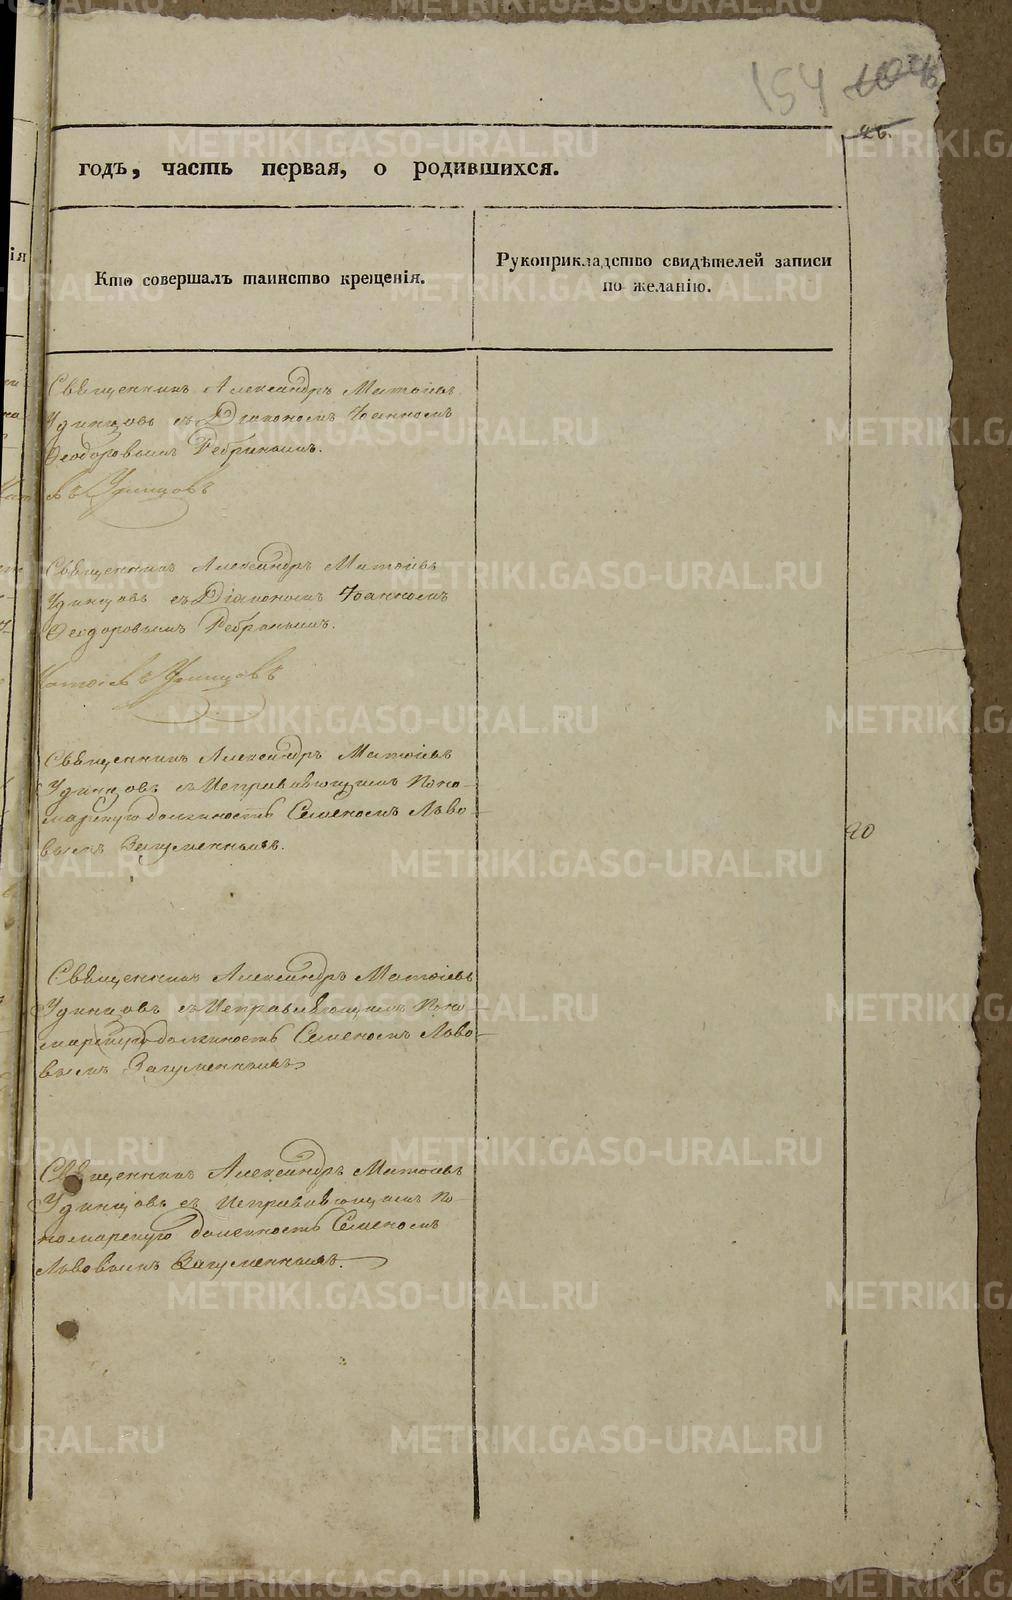 154
26.
годъ, часть первая, о родившихся.
Кто совершалъ таинство крещенія.
Рукоприкладство свидѣтелей записи
по желанію.
ія
Священникъ Александръ Матѳіевъ
Удинцовъ съ Діакономъ Іоанномъ
Ѳеодоровымъ Ребринымъ.
въ Удинцовъ
Священникъ Александръ Матѳіевъ
Удинцовъ съ Діакономъ Іоанномъ
Ѳеодоровымъ Ребринымъ.
Матѳіевъ Удинцовъ
Священникъ Александръ Матѳіевъ
Удинцовъ съ Исправляющимъ Поно-
марскую должность Семеномъ Льво-
вымъ Загуменнымъ.
20
Священникъ Александръ Матѳіевъ
Удинцовъ съ Исправляющимъ Поно-
марскую должность Семеномъ Льво-
вымъ Загуменнымъ
Священникъ Александръ Матѳіевъ
Удинцовъ съ Исправляющимъ По-
номарскую должность Семеномъ
Львовымъ Загуменнымъ.
METRIKI.GASO-URAL.RU